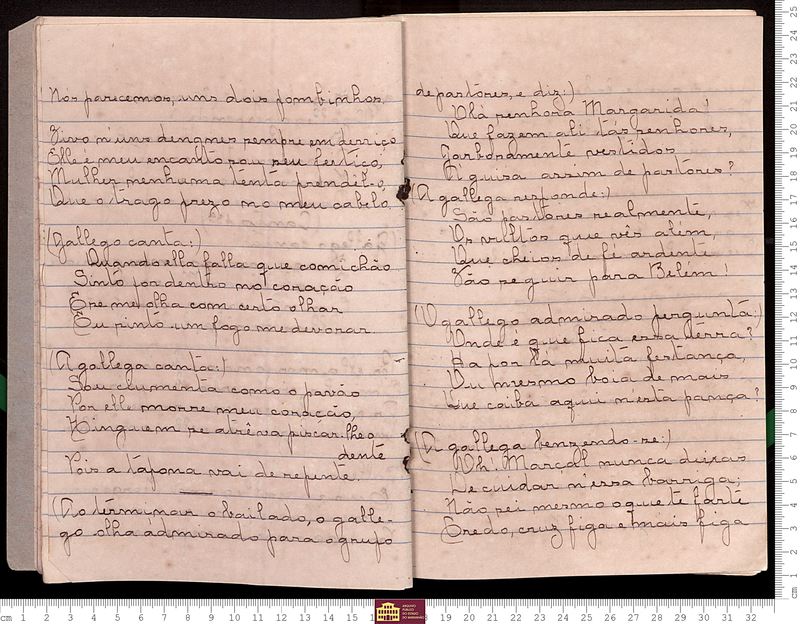 Nós parecemos, uns dois pombinhos.
Vivo n'uns dengues sempre em derriço
Elle e meu encanto sou seu feitiço;
Mulher nenhuma tenta prendêl-o,
Que o trago prezo no meu cabelo.
(Gallego canta:)
Quando ella falla que comichão
Sinto por dentro no coração
E se me olha com certo olhar
Eu sinto um fogo me devorar
(A gallega canta:)
Sou ciumenta como o pavão
Por elle morre meu coração,
Ninguem se atrêva piscar-lheo
dente
Pois a tapona vai de repente.
(Ao términar o bailado, o galle-
go olha admirado para o grupo
de pastôres, e diz:)
Olá senhora Margarida!
Que fazem ali tás senhores,
Garbosamente vestidos
A guisa assim de pastores?
(A gallega responde:)
São pastores realmente,
Os vultos que vês além,
Que cheios de fé ardente
Vão seguir para Belém!
(O gallego admirado pergunta:)
Onde é que fica essa térra?
Ha por lá muita festança,
Ou mesmo boia de mais
Que caiba aqui n'esta pança?
(A gallega benzendo-se:)
Oh! Marçal nunca deixas
De cuidar n'essa barriga;
Não sei mesmo o que te farte
Credo, cruz figa e mais figa
cm 1 2 3 4 5 6 7 8 9 10 11 12 13 14 15 1
ARQUIVO
PÚBLICO
DO ESTADO
DO MARANHÃO
8 19 20 21 22 23 24 25 26 27 28 29 30 31 32
cm 1 2 3 4 5 6 7 8 9 10 11 12 13 14 15 16 17 18 19 20 21 22 23 24 25